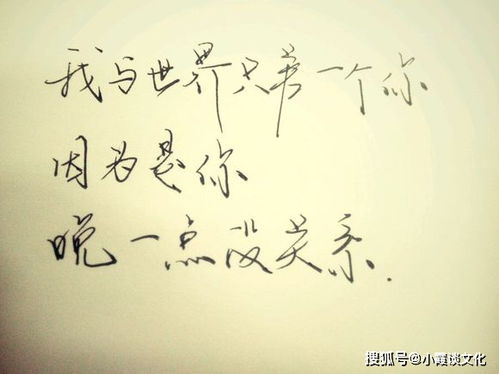 我与世界只差一个你
因为是你
晚一点没关系.
搜狐号@小霞谈文化